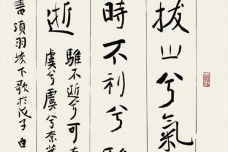 拔山兮氣
時不利兮
逝
騅不逝兮可奈
虞兮虞兮奈
書項羽垓下歌於